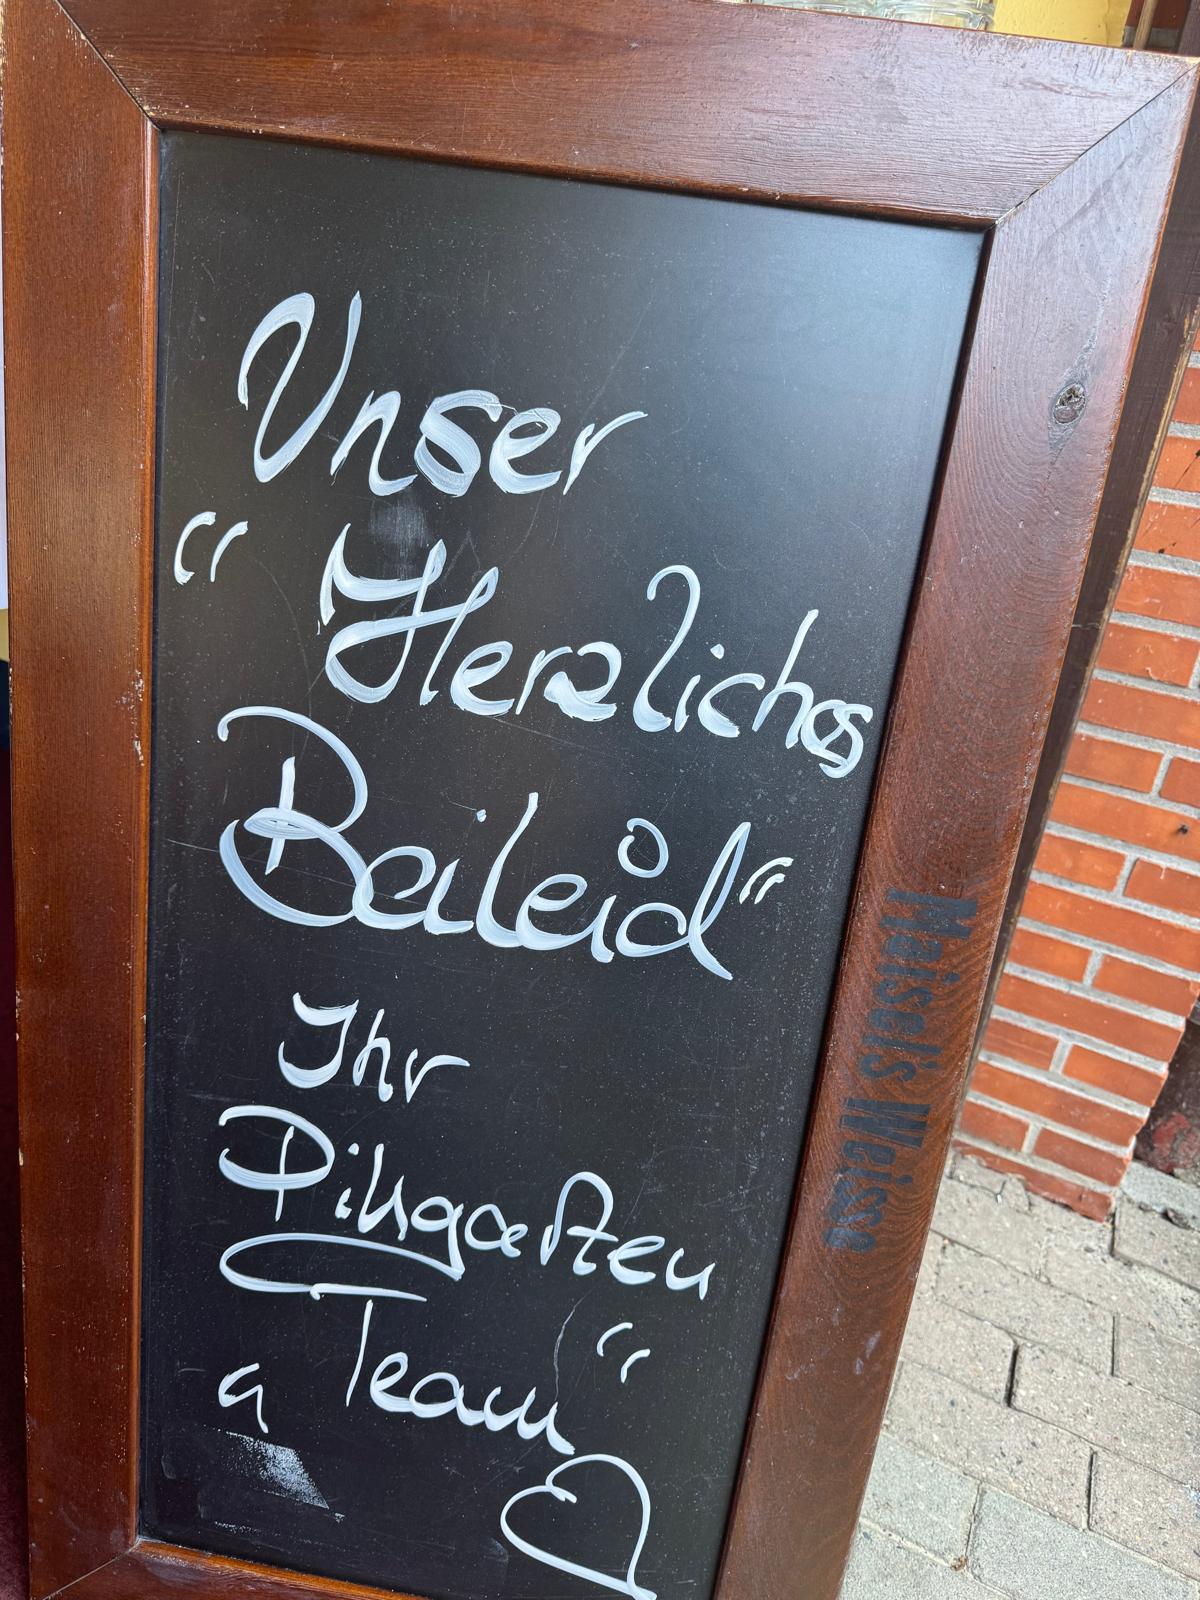 Unser
“Herzliches
Beileid“
Ihr
Team
Maisel's Weisse